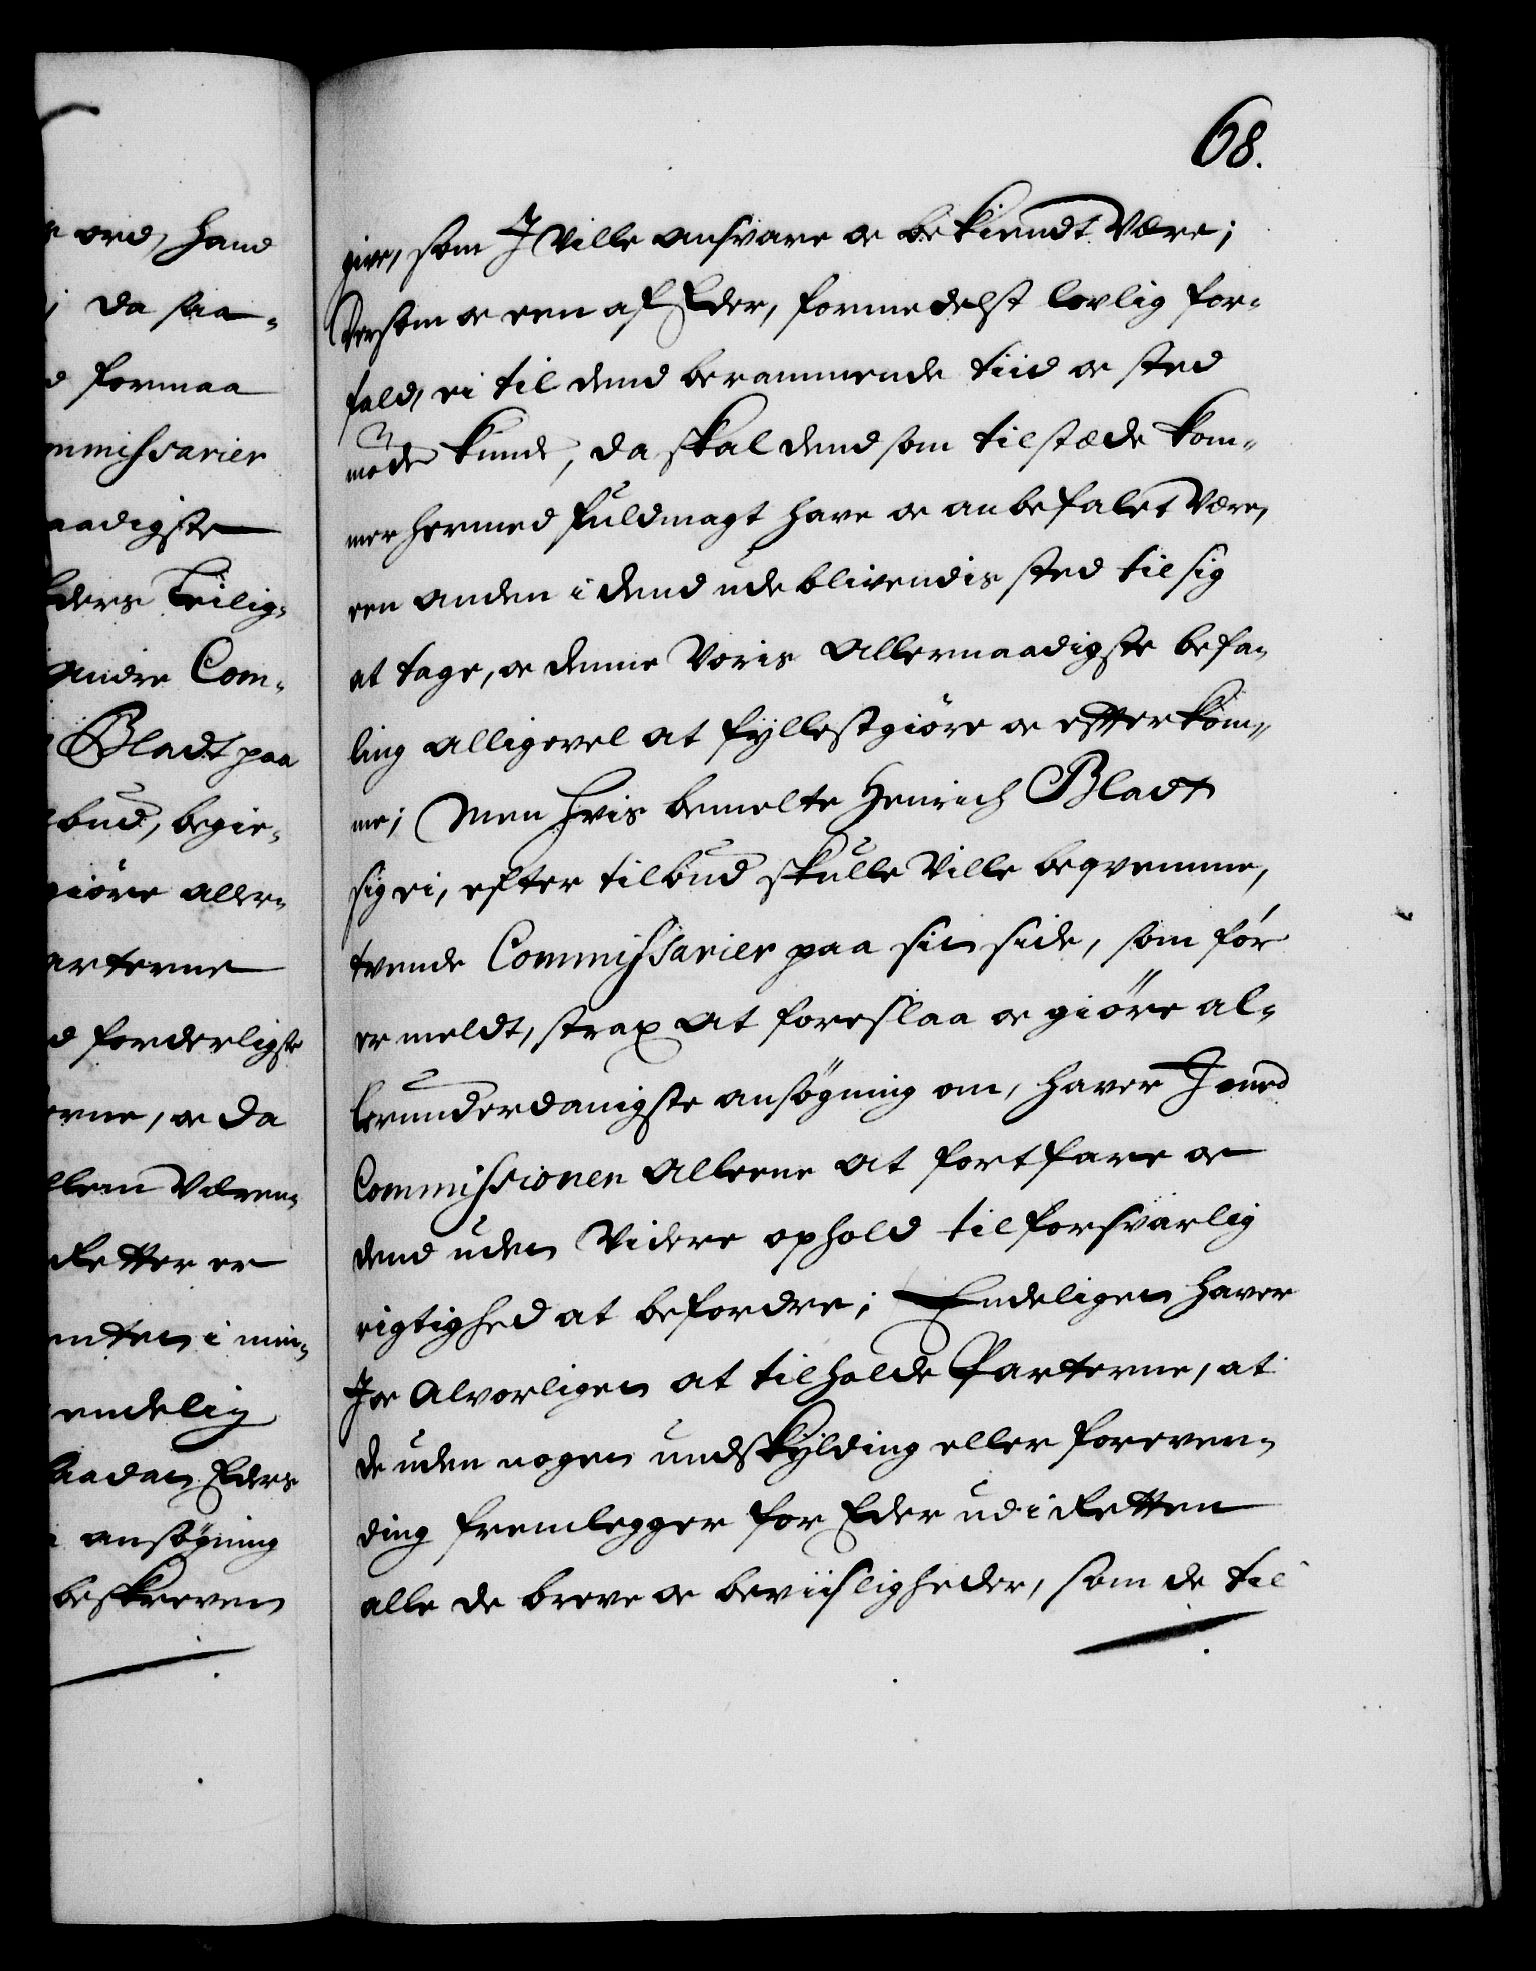 68.
r ord, hand
; da saa-
d formaa
mmissarier
aadigste
Eders billig-
andre Com-
Bladt paa
bud, begie-
giøre aller-
arterne
d forderligste
erne, oc da
llem væren-
Retter er
endelig
saadan Eders
ansøgning
beskreven
give, som I ville ansvare oc bekiendt være;
Dersom oc een af Eder, formedelst lovlig for-
fald, ei til dend berammende tiid oc sted
møde kunde, da skal dend som tilstæde kom-
mer hermed fuldmagt have oc anbefalet være,
een anden i dend udeblivendis sted til sig
at tage, oc denne Voris allernaadigste befa-
ling alligevel at fyllestgiøre oc efterkom-
me; Men hvis bemelte Henrich Bladt
sig ei, efter tilbud skulle ville beqvemme,
tvende Commissarier paa sin side, som før
er meldt, strax at foreslaa oc giøre al-
lerunderdanigste ansøgning om, haver I med
Commissionen alleene at fortfare oc
dend uden videre ophold til forsvarlig
rigtighed at befordre; Endeligen haver
I oc alvorligen at tilholde Parterne, at
de uden nogen undskylding eller foreven-
ding fremlegger for Eder udi Retten
alle de breve oc beviisligheder, som de til